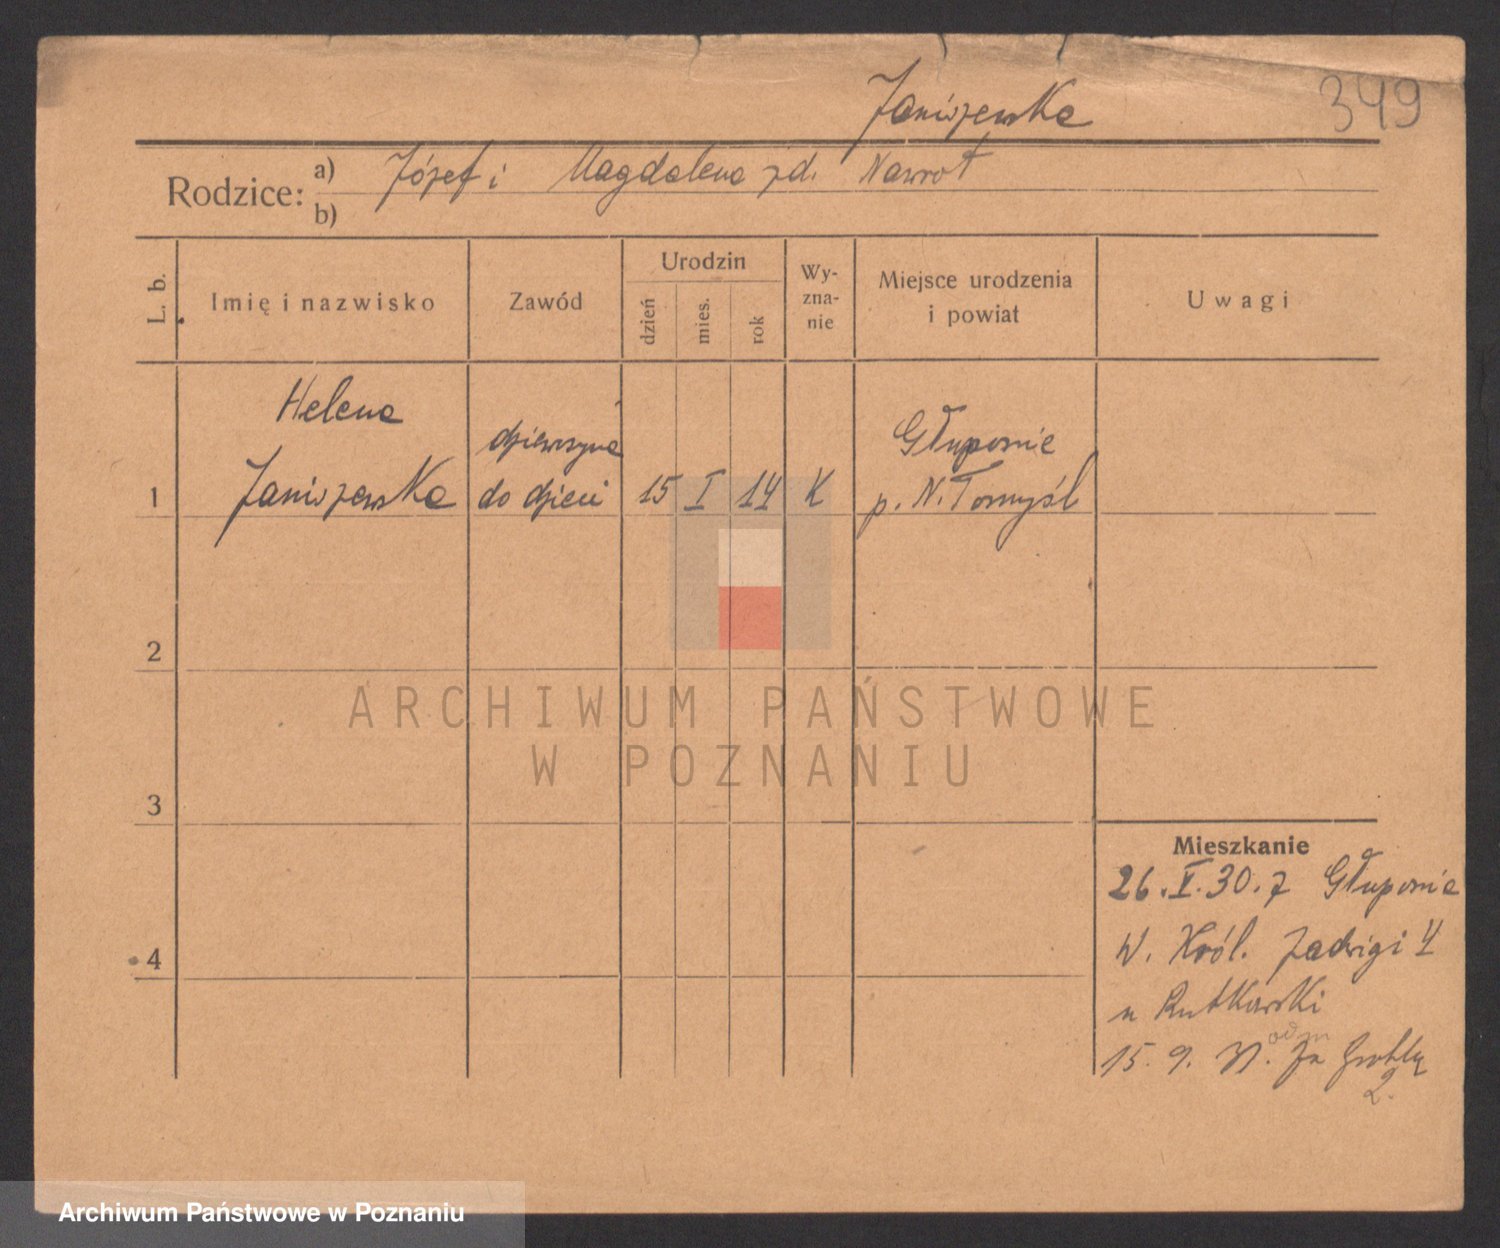 Janiszewska
349
Rodzice:
a) Józef i Magdalena zd. Nawrot
b)
L. b.
Imię i nazwisko
Zawód
Urodzin
dzień
mies.
rok
Wy-
zna-
nie
Miejsce urodzenia
i powiat
Uwagi
Helena
dziewczyna
Głuponie
1 Janiszewska do dzieci 15 I 14 K p. N. Tomyśl
2
3
4
Mieszkanie
26.V.30. z Głuponie
W. Król. Jadwigi 4
u Rutkowski
15. 9. 31. Za Groblą
2.
ARCHIWUM PAŃSTWOWE
W POZNANIU
Archiwum Państwowe w Poznaniu